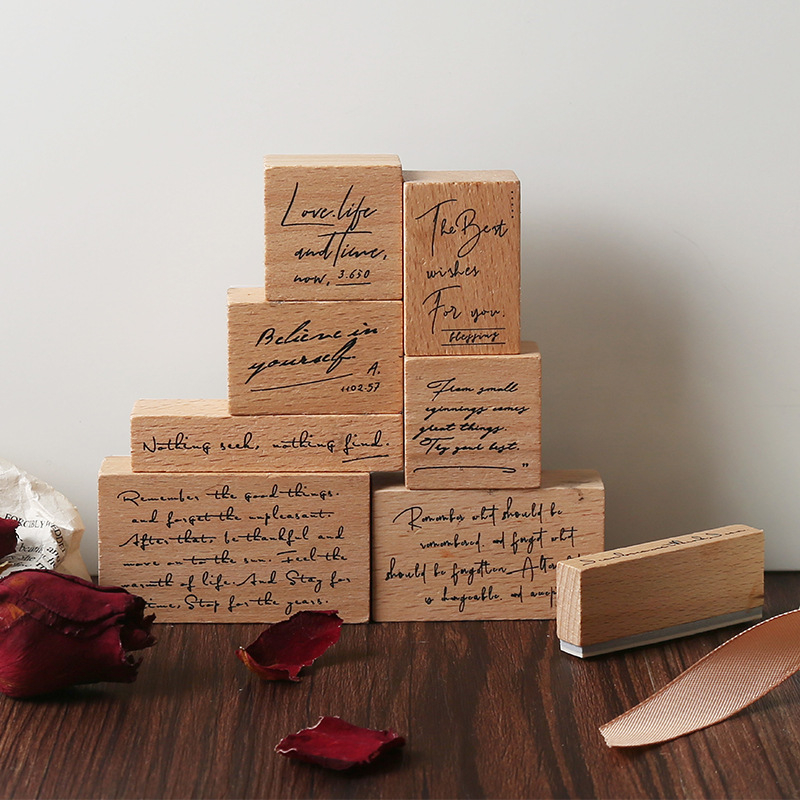 Love.life
and Time,
now, 3.650
The Best
wishes
For you.
blessing
Believe in
yourself.
A.
1102.57
"From small
eginnings comes
great things.
Try your best.
"
Nothing seek, nothing find.
Remember the good things.
and forget the unpleasant.
After that, be thankful and
move on to the sun. Feel the
warmth of life. And Stay for
time, Stop for the years.
Remember what should be
remembered, and forget what
should be forgotten. Alter
is changeable. and accep
FORCIBLY